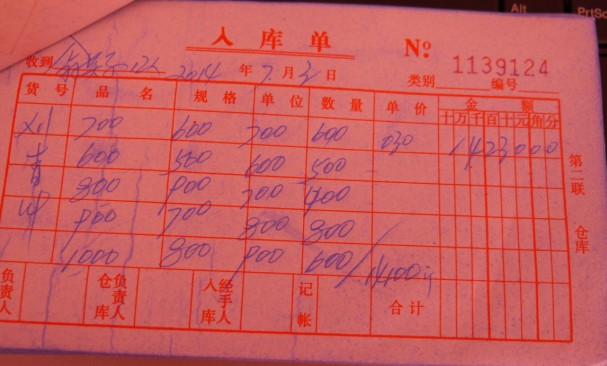 Alt PrtSc
入库单 № 1139124
收到 2014年7月3日 类别 编号
货号 品名 规格 单位 数量 单价 金额
十万千百十元角分
刘 700 600 700 600 030 1423000
青 600 500 600 500
800 900 700 900
900 700 800 800
1000 800 900 600
第二联 仓库
负责人 仓库负责人 入库经手人 记帐 合计